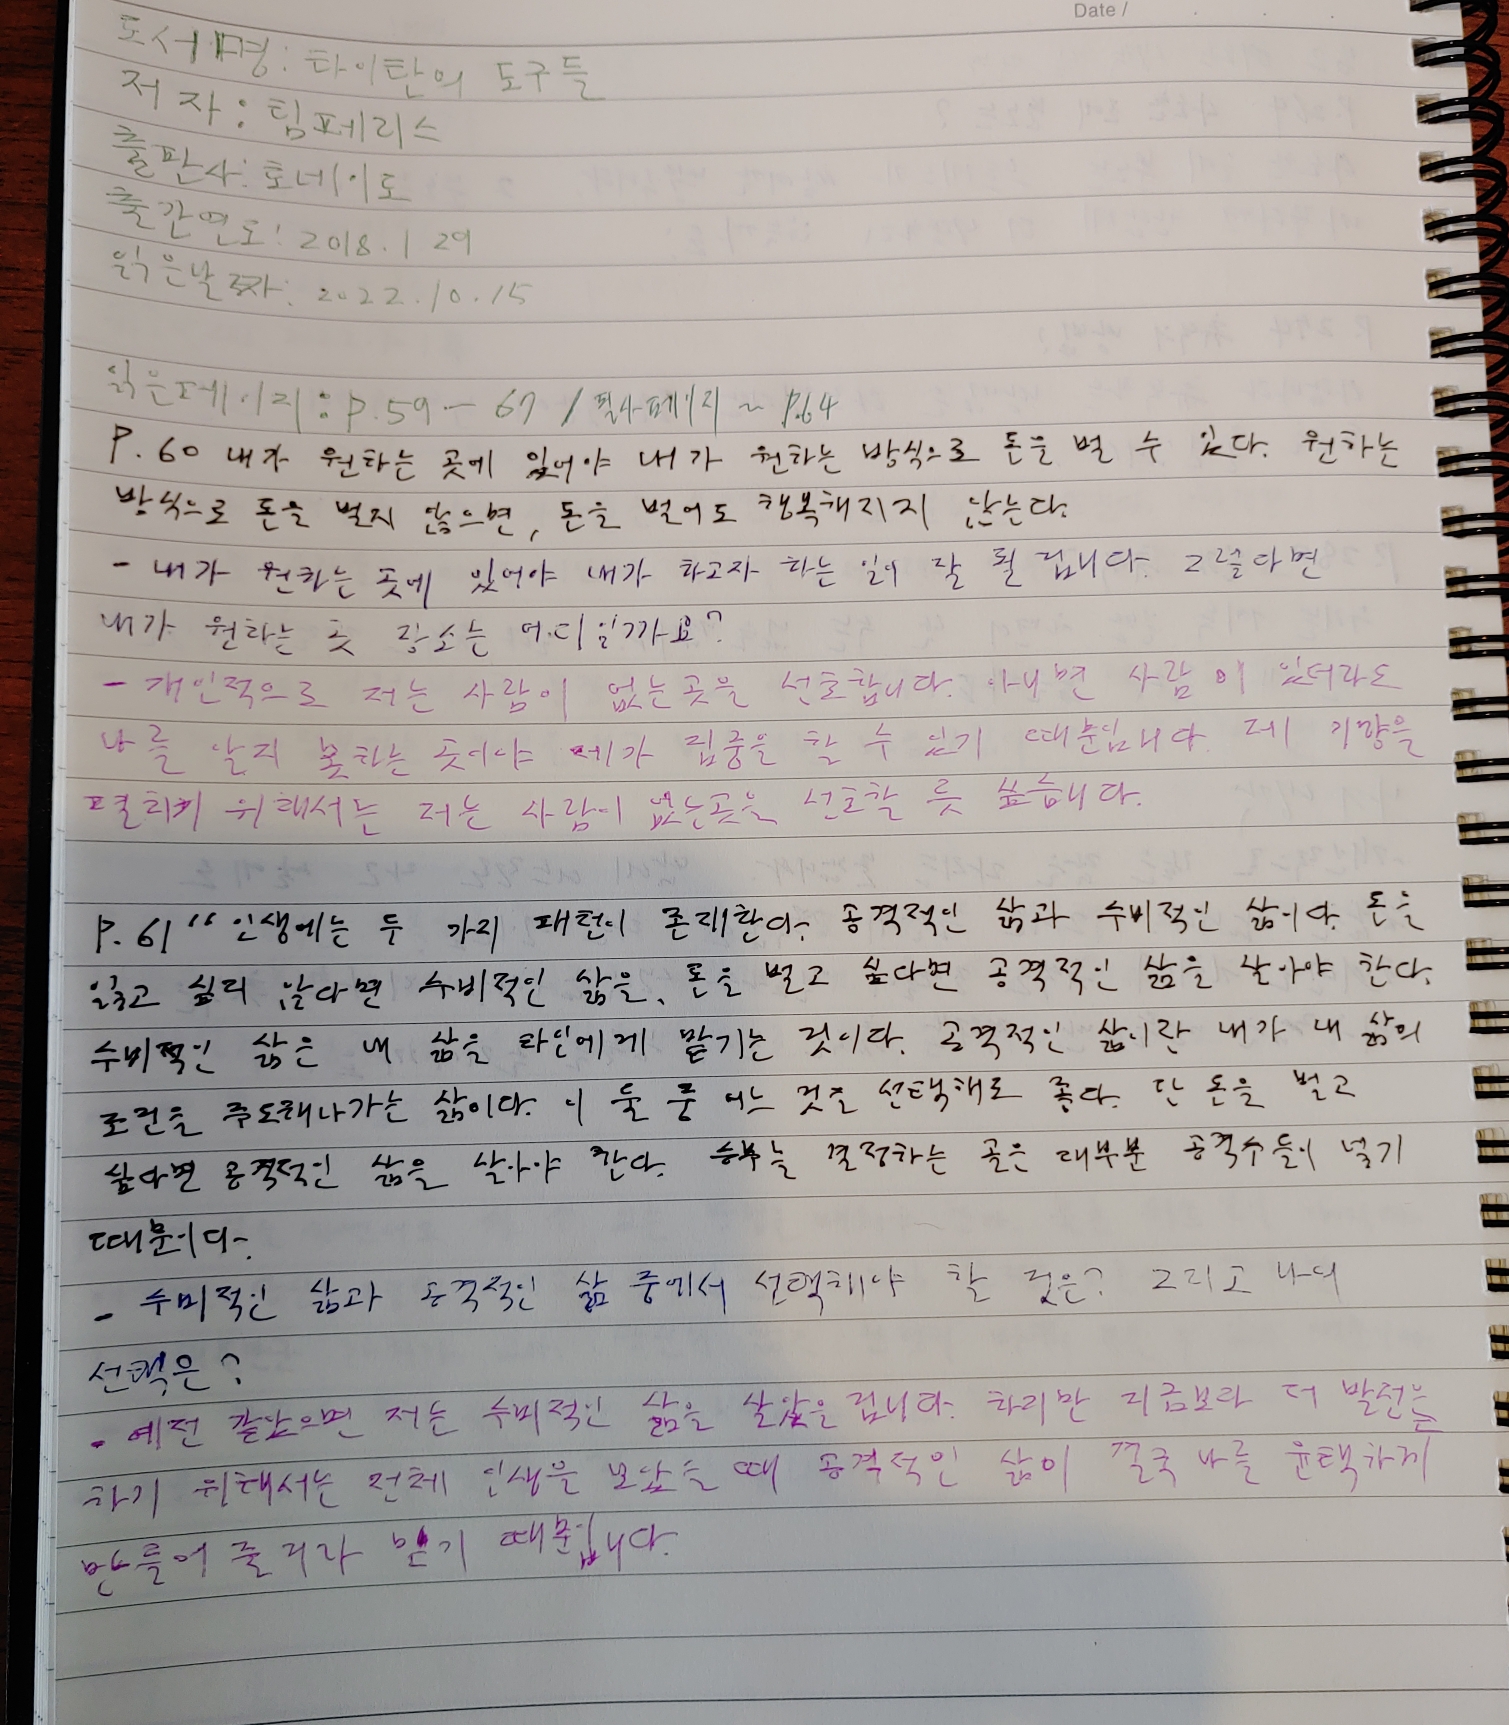 Date /
도서명: 타이탄의 도구들
저자: 팀페리스
출판사: 토네이도
출간연도: 2018.1 29
읽은날짜: 2022.10.15
읽은페이지: P.59 - 67 / 필사페이지 ~ P.64
P.60 내가 원하는 곳에 있어야 내가 원하는 방식으로 돈을 벌 수 있다. 원하는
방식으로 돈을 벌지 않으면, 돈을 벌어도 행복해지지 않는다.
- 내가 원하는 곳에 있어야 내가 하고자 하는 일이 잘 될 겁니다. 그렇다면
내가 원하는 곳 장소는 어디일까요?
- 개인적으로 저는 사람이 없는곳을 선호합니다. 아니면 사람이 있더라도
나를 알지 못하는 곳이야 제가 집중을 할 수 있기 때문입니다. 제 기량을
펼치기 위해서는 저는 사람이 없는곳을 선호할 듯 싶습니다.
P.61 "인생에는 두 가지 패턴이 존재한다. 공격적인 삶과 수비적인 삶이다. 돈을
잃고 싶지 않다면 수비적인 삶을, 돈을 벌고 싶다면 공격적인 삶을 살아야 한다.
수비적인 삶은 내 삶을 타인에게 맡기는 것이다. 공격적인 삶이란 내가 내 삶의
조건을 주도해나가는 삶이다. 이 둘 중 어느 것을 선택해도 좋다. 단 돈을 벌고
싶다면 공격적인 삶을 살아야 한다. 승부를 결정하는 골은 대부분 공격수들이 넣기
때문이다.
- 수비적인 삶과 공격적인 삶 중에서 선택해야 할 것은? 그리고 나의
선택은?
- 예전 같았으면 저는 수비적인 삶을 살았을 겁니다. 하지만 지금보다 더 발전을
하기 위해서는 전체 인생을 보았을 때 공격적인 삶이 결국 나를 윤택하게
만들어 줄 거라 믿기 때문입니다.